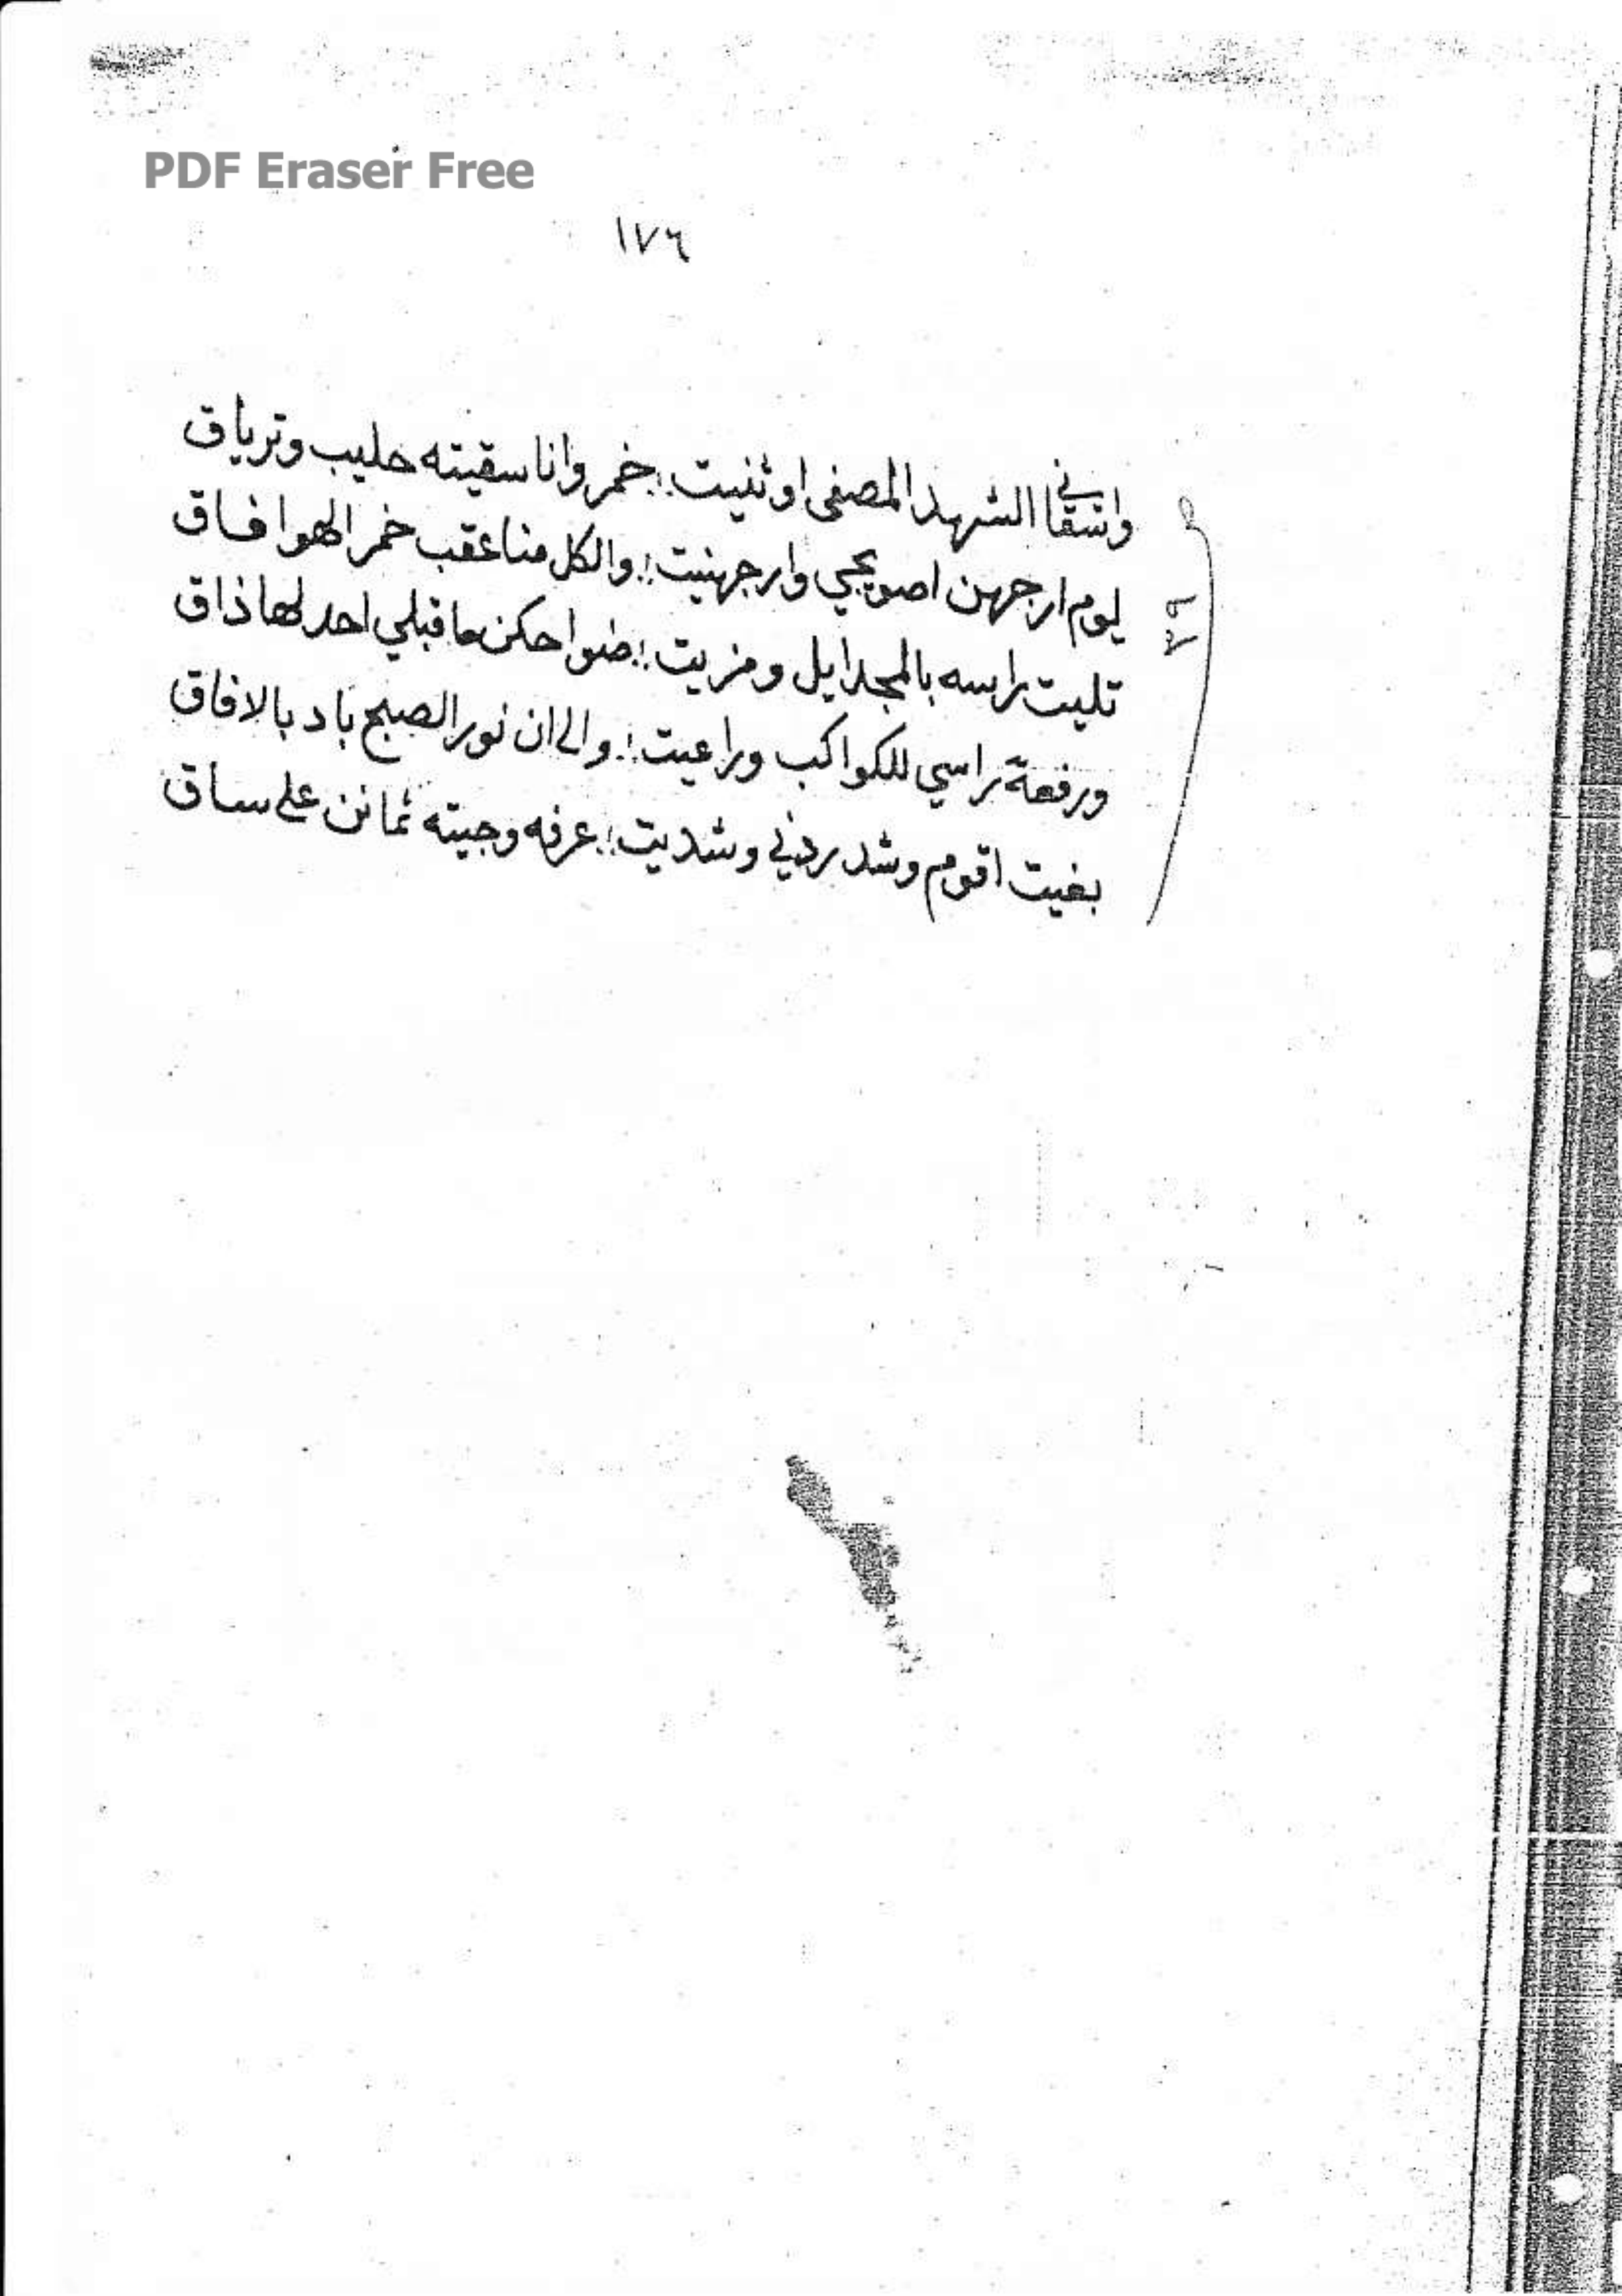 PDF Eraser Free
١٧٦
الشهد المصفى او ثنيت :. خمر وانا سقيته حليب وترياق
ليوم ارجهن اصويحبي وارجهنيت :. والكل منا عقب خمر الهوا فاق
تليت راسه بالمجدايل ومزيت :. ضواحكن ما قبلي احد لها ذاق
ورفعة راسي للكواكب وراعيت :. والى ان نور الصبح باد بالافاق
بغيت اقوم وشد ردني وشديت :. عرفه وجيته ثمانن على ساق